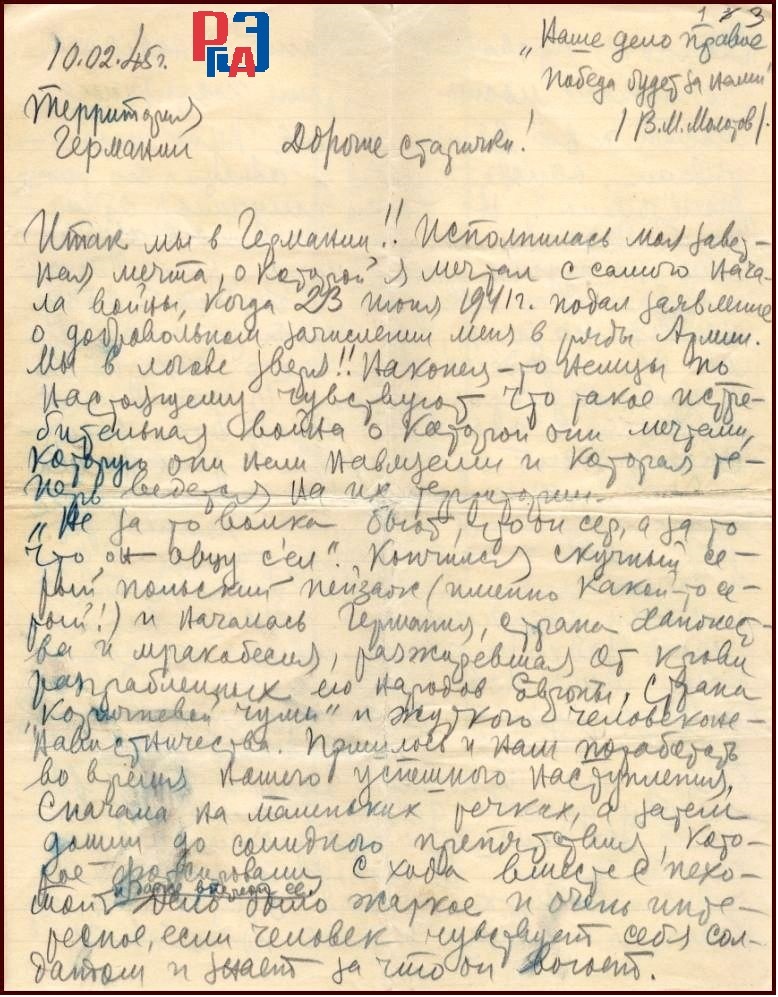 1 3
РГАЭ
10.02.45г.
„Наше дело правое
победа будет за нами"
/В.М.Молотов/.
Территория
Германии
Дорогие старички!
Итак мы в Германии!! Исполнилась моя завет-
ная мечта, о которой я мечтал с самого нача-
ла войны, когда 23 июня 1941г. подал заявление
о добровольном зачислении меня в ряды Армии.
Мы в логове зверя!! Наконец-то немцы по
настоящему чувствуют что такое истре-
бительная война о которой они мечтали,
которую они нам навязали и которая те-
перь ведется на их территории.
„Не за то волка бьют, что он сер, а за то
что он овцу с'ел". Кончился скучный се-
рый польский пейзаж (именно какой-то се-
рый!) и началась Германия, страна
ва и мракобесия, разжиревшая от крови
разграбленных ею народов Европы, страна
"Коричневой чумы" и жуткого человеконе-
навистничества. Пришлось и нам поработать
во время нашего успешного наступления,
сначала на маленьких речках, а затем
дошли до солидного препятствия, кото-
рое форсировали с хода вместе с пехо-
и даже впереди ее.
той. Дело было жаркое и очень инте-
ресное, если человек чувствует себя сол-
датом и знает за что он воюет.